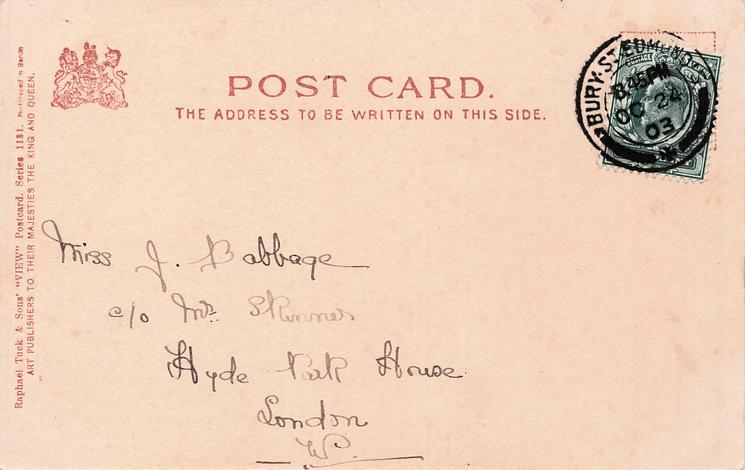 POST CARD.
THE ADDRESS TO BE WRITTEN ON THIS SIDE.
BURY·ST·EDMUNDS
8.45PM
OC 24
03
Miss J. Babbage
c/o Mrs. Skinner
Hyde Park House
London
W.
Raphael Tuck & Sons' "VIEW" Postcard. Series 1131. Photographed in Berlin
ART PUBLISHERS TO THEIR MAJESTIES THE KING AND QUEEN.